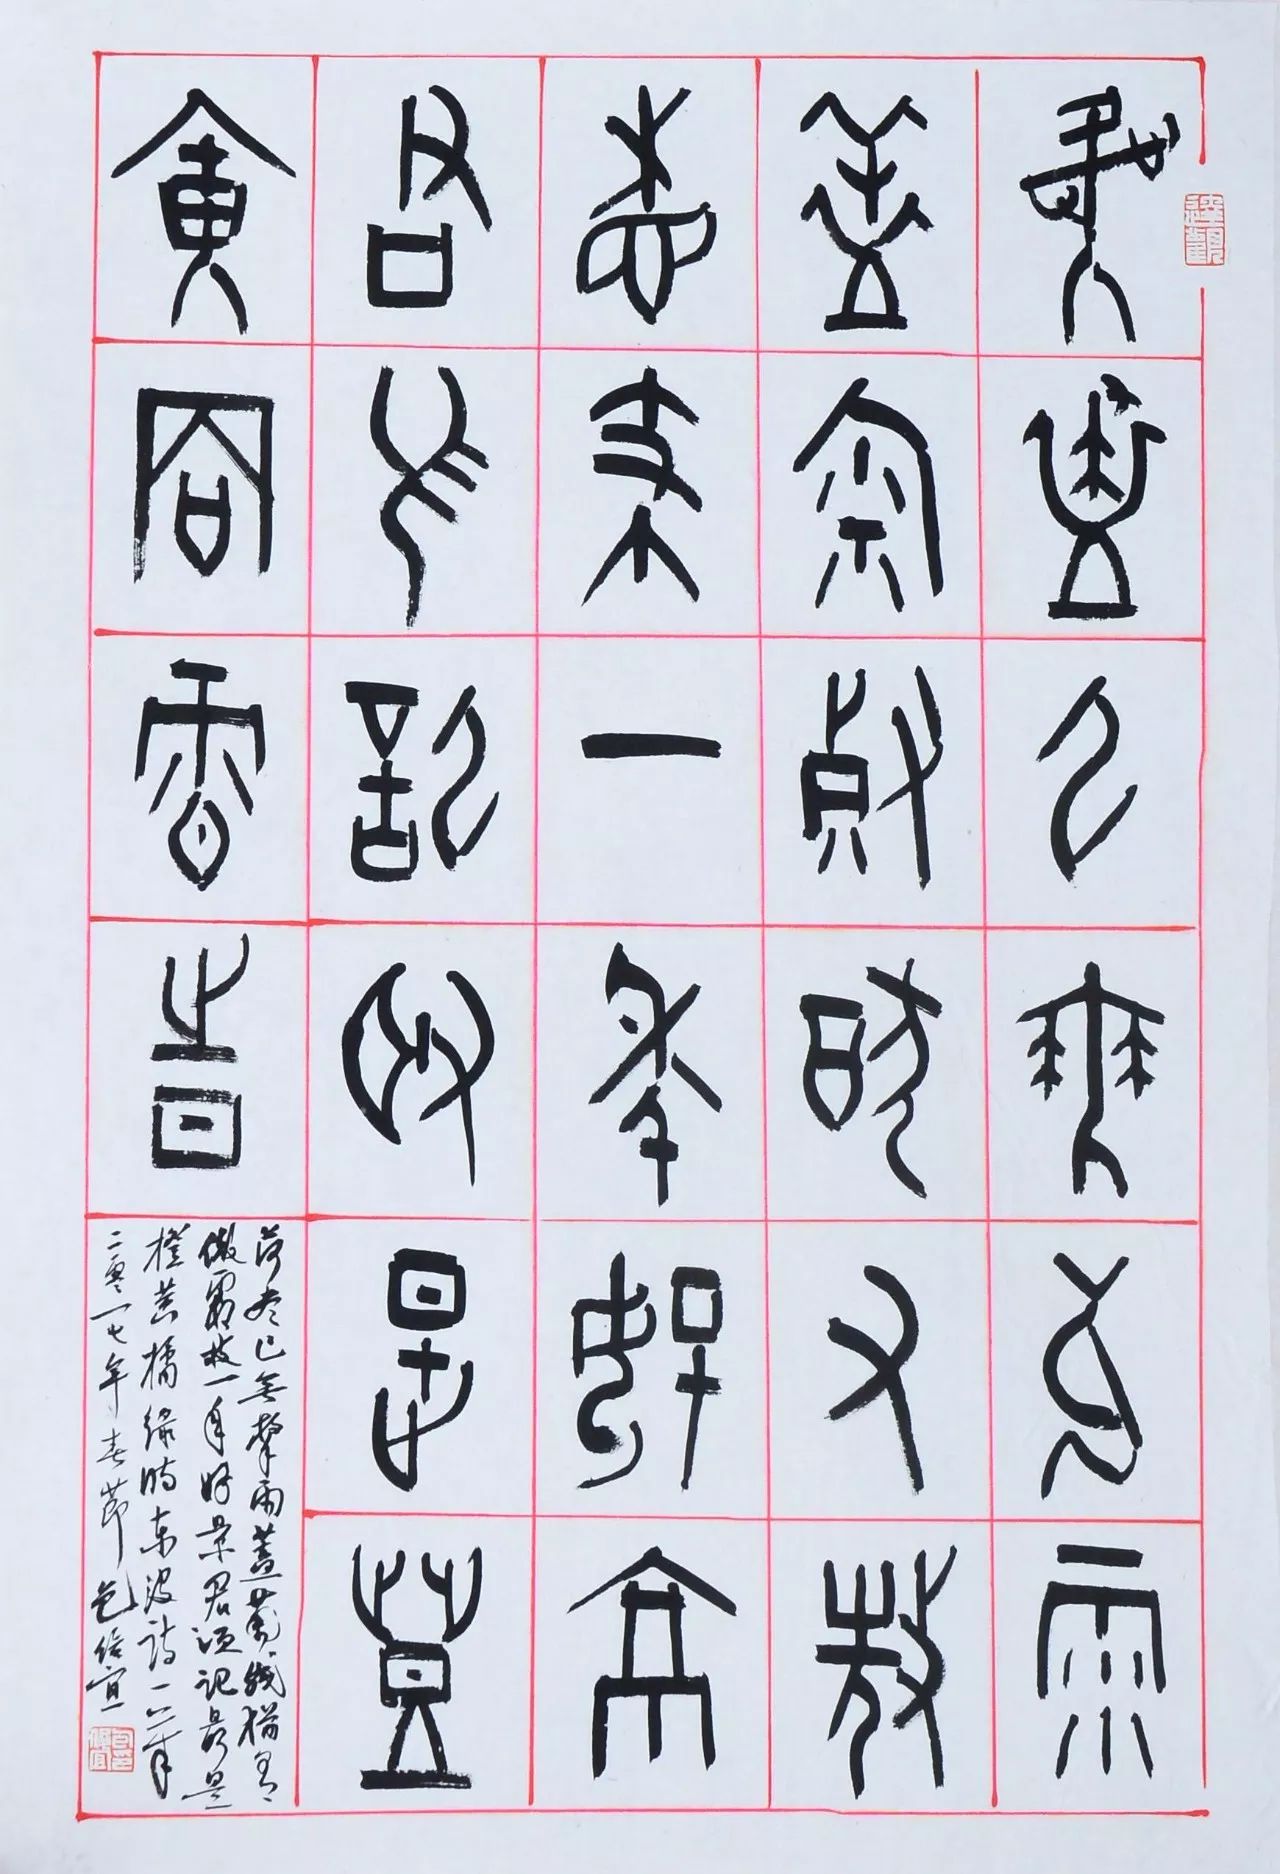 荷盡已無擎雨
蓋菊殘猶有傲
霜枝一年好景
君須記最是橙
黃橘綠時
荷尽已无擎雨蓋菊残猶有
傲霜枝一年好景君須記最是
橙黄橘绿时东坡诗一首
二零一七年春节包